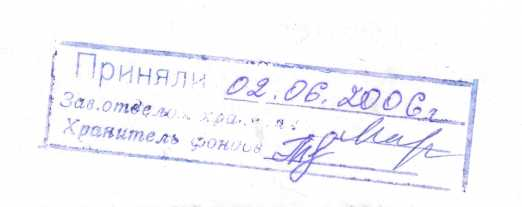 Приняли 02.06.2006г
Зав.отделом хранения
Хранитель фондов